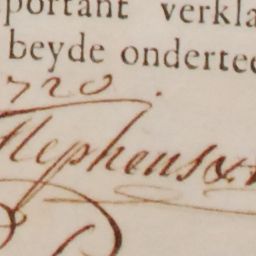 portant verkla
beyde ondertee
720.
Stephenson